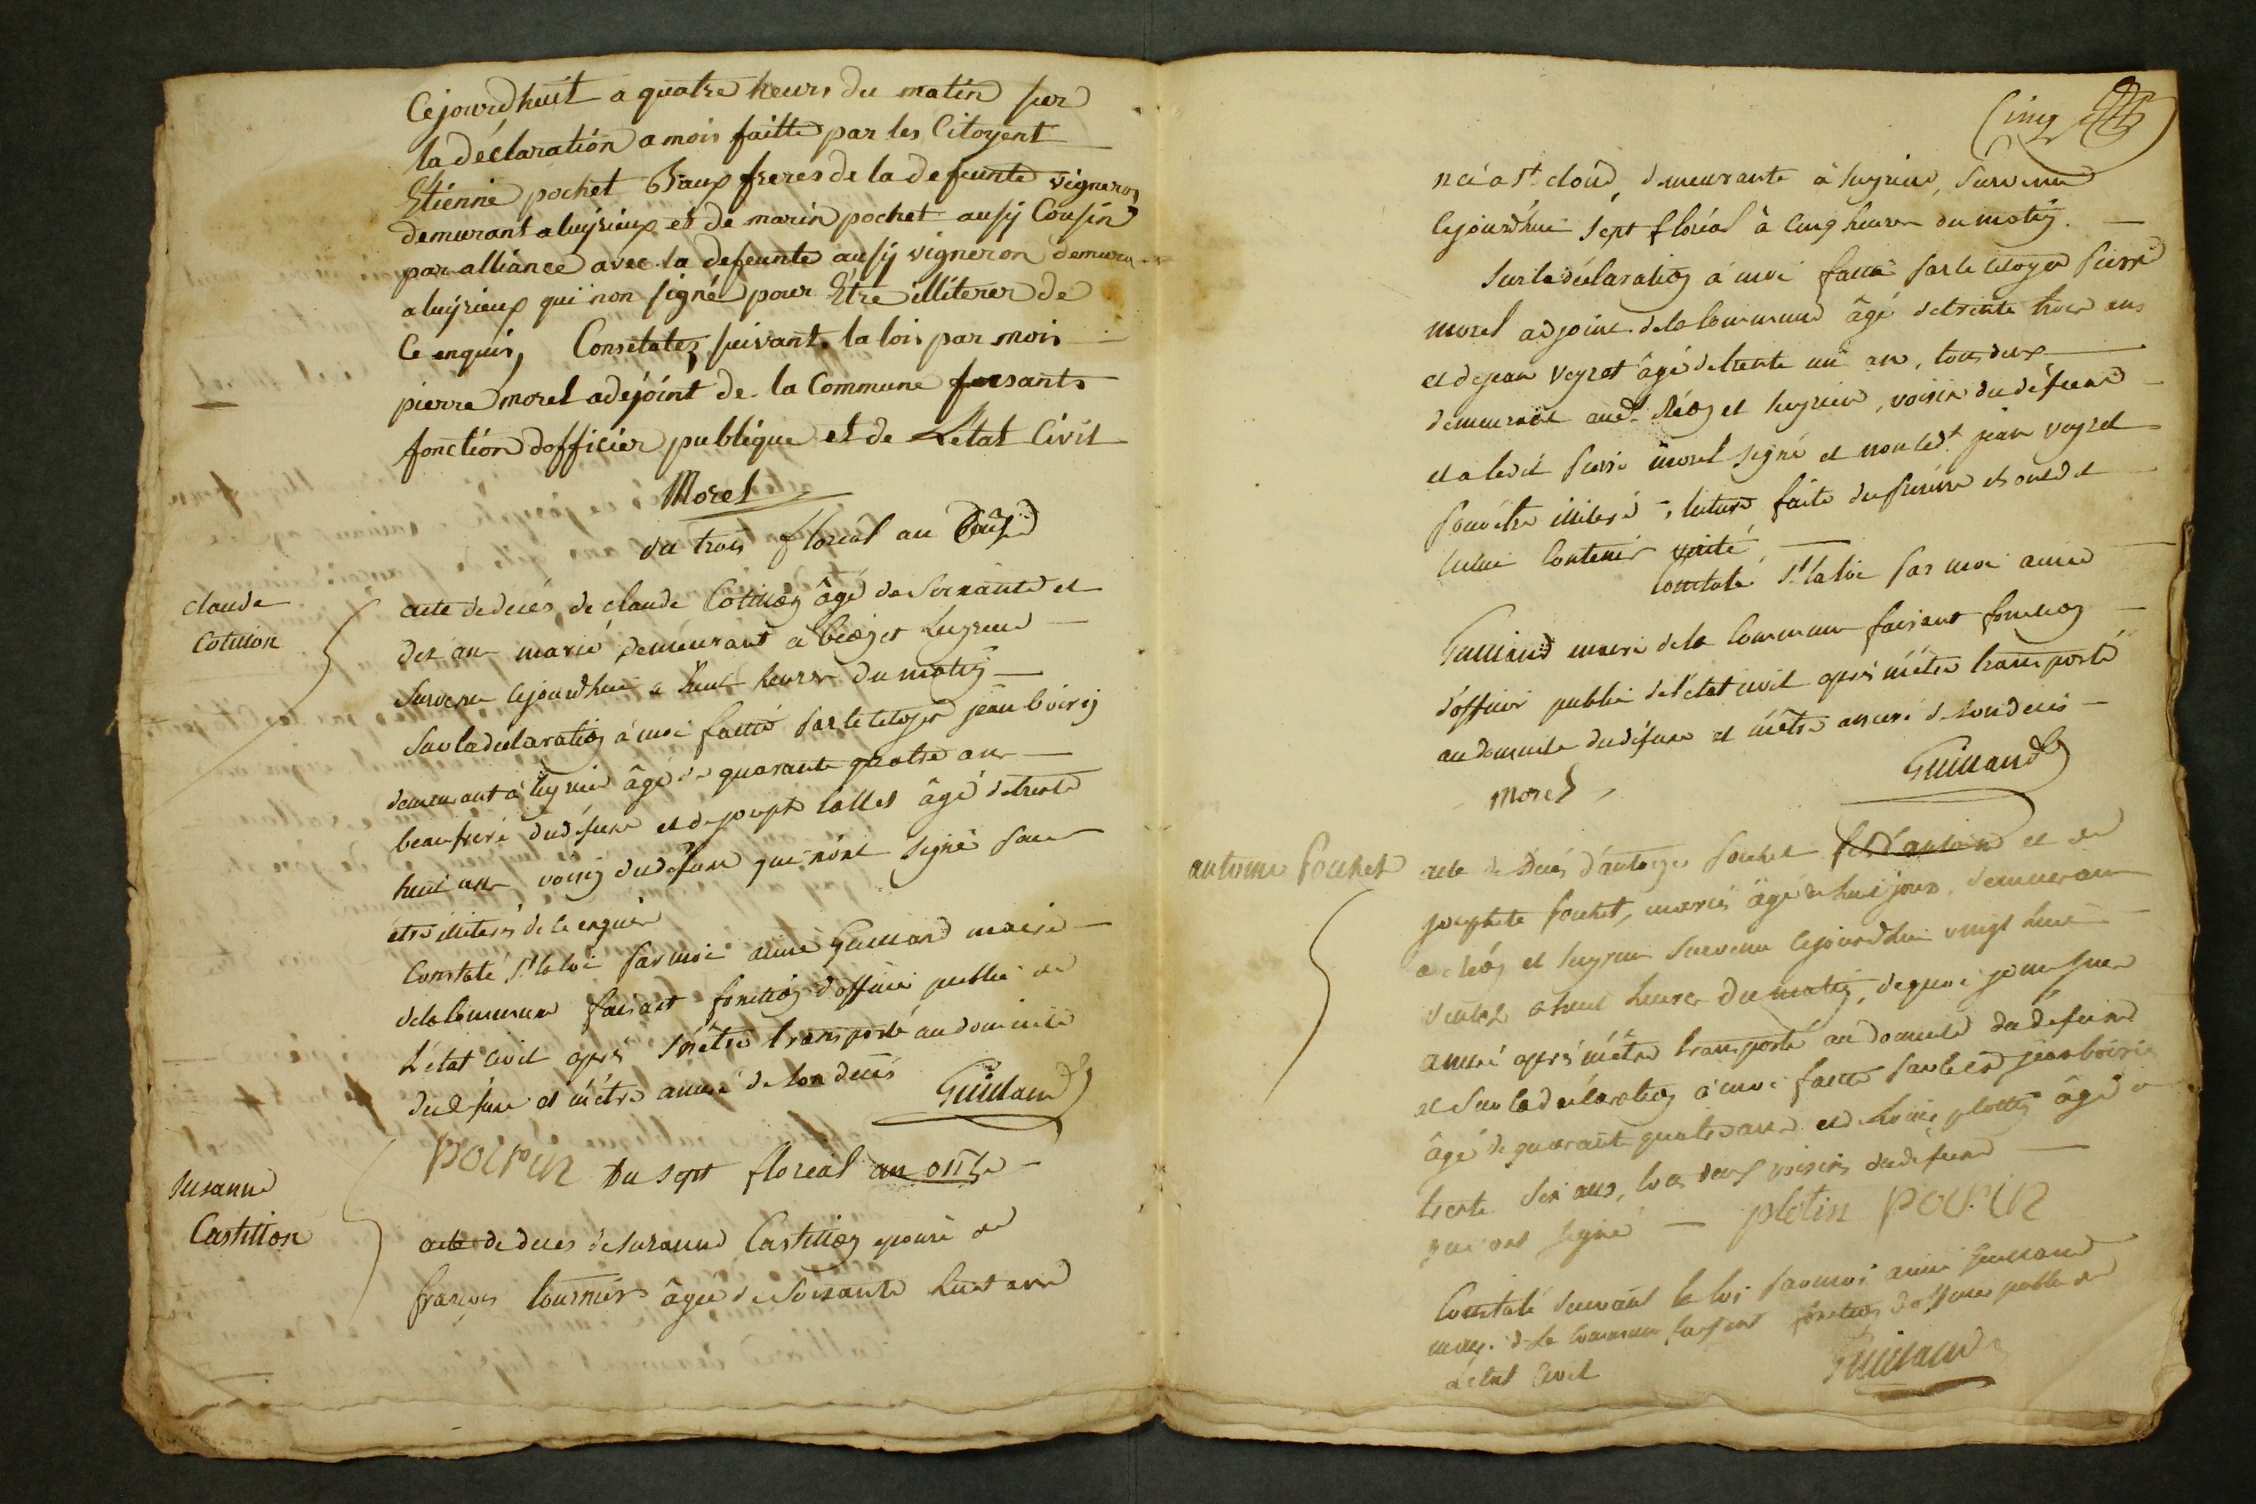 Cejourdhuit a quatre heurs du matin sur
la déclaration a mois faitte par les Citoyent
Etienne pochet Baux freres de la defeunte vigneron
demurant a luÿrieux et de marin pochet ausÿ Cousin
par alliance avec la defeunte ausÿ vigneron demura
a luÿrieux qui non signé pour Être illiterer de
Ce enquis, Consetatez suivant la lois par mois
pierre morel adejoint de la Commune faisants
fonction dofficier publique et de Letat Civil
Morel
du trois floréal an
claude
Cotillon
acte de decés de claude Cotillon âgé de soixante et
dix ans marié demeurant a béon et Luyrieu
survenu cejourdhui a huit heures du matin
Sur la déclaration à moi faitte par le citoyen jean boirin
demeurant à luyrieu âgé de quarante quatre ans
beau frere du défunt et de joseph lallet âgé de trente
huit ans voisin du défunt qui n'ont signé pour
être illiterés de ce enquis
Constaté st la loi par moi aimé Guilland maire
de la commune faisant fonction d'officier public de
L'état civil après m'être transporté au domicile
du défunt et m'être assuré de son decés
Guilland
poirin
Du sept floreal an onze
susanne
Castillon
acte de deces de susanne Castillon epouse de
françois tournier âgée de soixante huit ans
Cinq
née à st cloud, demeurante à luyrieu, survenu
cejourdhui sept floréal à cinq heures du matin.
Sur la déclaration à moi faitte par le citoyen pierre
morel adjoint de la commune âgé de trente trois ans
et de jean veyret âgé de trente un an, tous deux
demeurant aud. Béon et luyrieu, voisin du défunt
et a ledit pierre morel signé et non led.t jean veyret
pour être illiteré, lecture faite du présent et ont dit
icelui contenir verité
Constaté s.t la loi par moi aimé
Guilland maire de la commune faisant fonction
d'officier public de l'état civil après m'être transporté
au domicile du défunt et m'être assuré de son decés
Guilland
Morel
antoine pochet
acte de Decés d'antoine pochet fils d'antoine et de
josephete pochet, mariés âgé de huit jours, demeurant
a béon et luyrieu survenu cejourd'hui vingt huit
a huit heures du matin, de quoi je me suis
assuré après m'être transporté au domicile du défunt
et sur la déclaration à moi faitte par les cit. jean boirin
âgé de quarante quatre ans et de Louis plottin âgé de
trente six ans, tous deux voisins du défunt
qui ont signé — plotin poirin
Constaté suivant la loi par moi aimé Guilland
maire de la commune faisant fonction d'officier public de
L'état Civil
Guilland